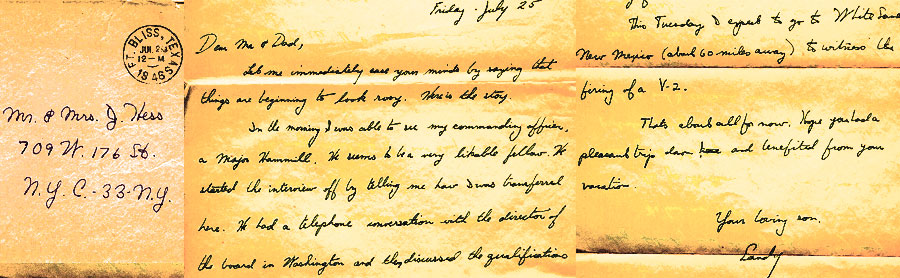 FT. BLISS, TEXAS
JUN. 2
12-M
1946
Mr. & Mrs. J. Hess
709 W. 176 St.
N.Y. C.-33-N.Y.
Friday - July 25
Dear Ma & Dad,
Let me immediately ease your minds by saying that
things are beginning to look rosy. Here is the story.
In the morning I was able to see my commanding officer,
a Major Hammill. He seems to be a very likable fellow. He
started the interview off by telling me how I was transferred
here. He had a telephone conversation with the director of
the board in Washington and they discussed the qualifications
This Tuesday I expect to go to White Sands
New Mexico (about 60 miles away) to witness the
firing of a V-2.
Thats about all for now. Hope you had a
pleasant trip down and benefited from your
vacation.
Your loving son,
Sandy